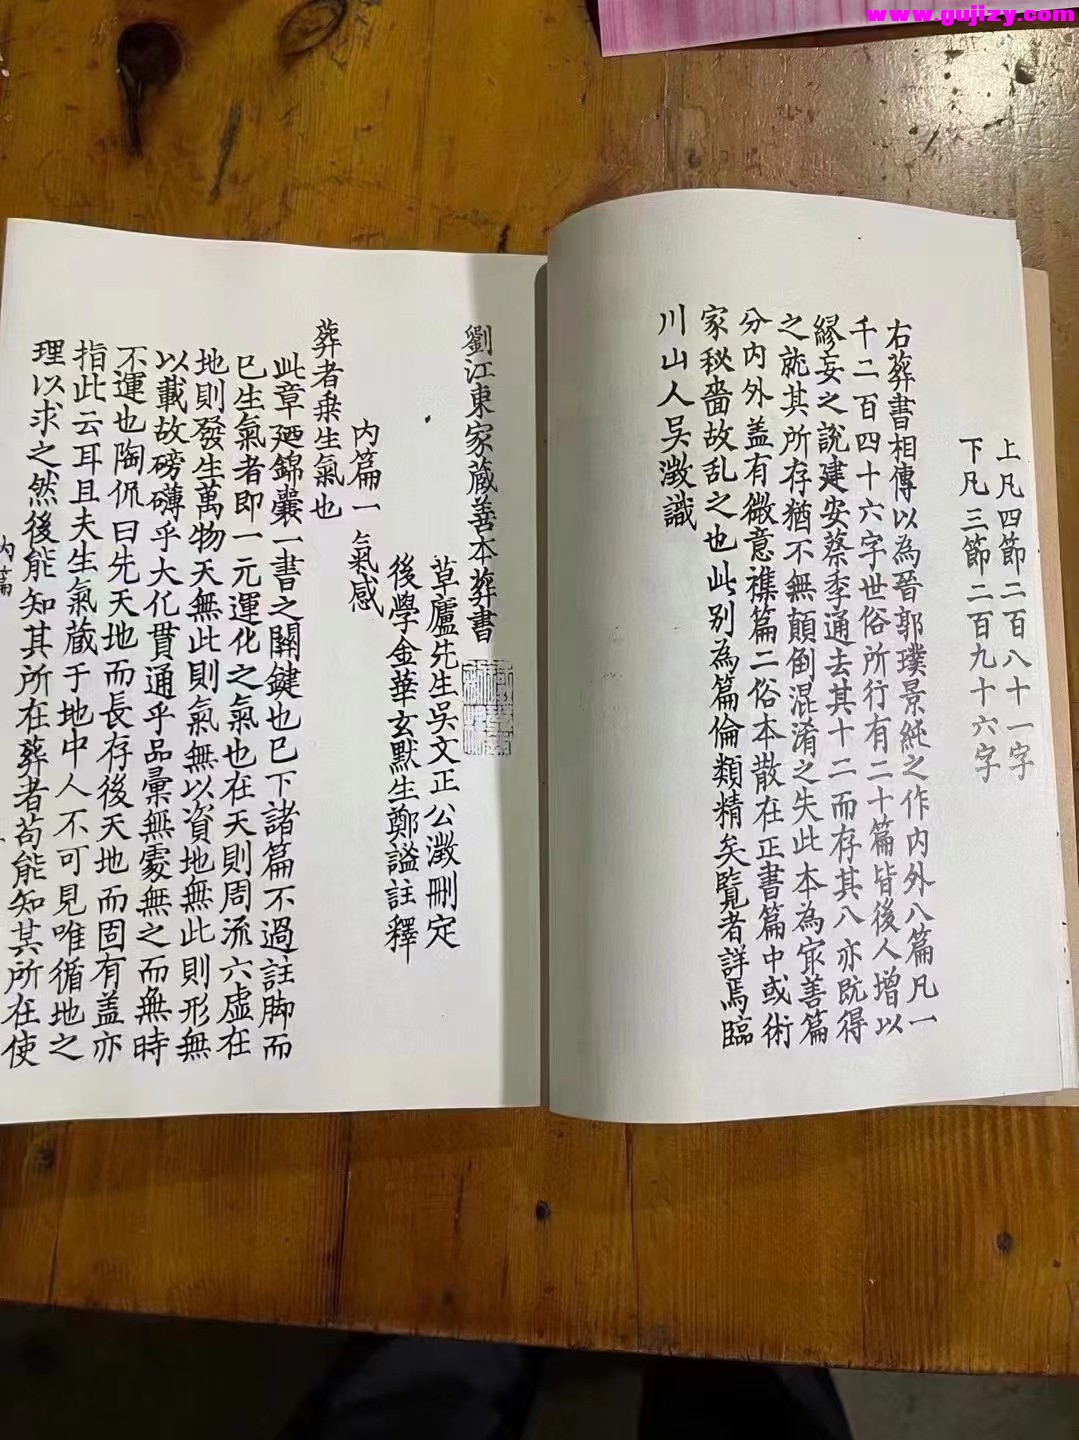 www.gujizy.com
上凡四節二百八十一字
下凡三節二百九十六字
右葬書相傳以為晉郭璞景純之作内外八篇凡一
千二百四十六字世俗所行有二十篇皆後人增以
繆妄之說建安蔡季通去其十二而存其八亦既得
之就其所存猶不無顛倒混淆之失此本為㝡善篇
分内外盖有微意襍篇二俗本散在正書篇中或術
家秘嗇故乱之也此别為篇倫類精矣覽者詳焉臨
川山人吴澂識
劉江東家蔵善本葬書
草廬先生吴文正公澂刪定
後學金華玄默生鄭謐註釋
内篇一 氣感
葬者乗生氣也
此章廼錦囊一書之關鍵也巳下諸篇不過註脚而
巳生氣者即一元運化之氣也在天則周流六虛在
地則發生萬物天無此則氣無以資地無此則形無
以載故磅礴乎大化貫通乎品彙無處無之而無時
不運也陶侃曰先天地而長存後天地而固有盖亦
指此云耳且夫生氣蔵于地中人不可見唯循地之
理以求之然後能知其所在葬者苟能知其所在使
内篇